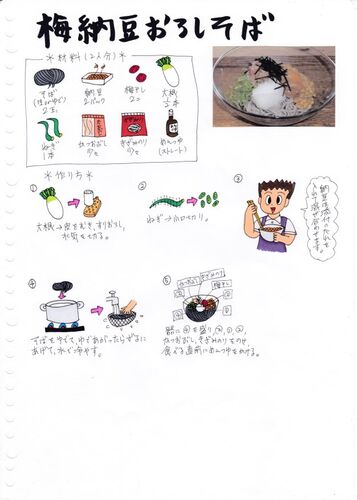 梅納豆おろしそば
＊材料(2人分)＊
そば
(ほしゆで)
2玉
納豆
2パック
梅干し
2コ
大根
1/2本
ねぎ
1本
かつおぶし
少々
きざみのり
少々
めんつゆ
(ストレート)
＊作り方＊
①
大根→皮をむき、すりおろし、
水気を切る。
②
ねぎ→小口切り。
③
納豆は添付のたれを
入れて混ぜ合わせます。
④
そばをゆで、ゆであがったらざるに
あげて、水で冷やす。
⑤
かつおぶし
きざみのり
梅干し
器に④を盛り、①、②、③、
かつおぶし、きざみのりをのせ、
食べる直前にめんつゆをかける。